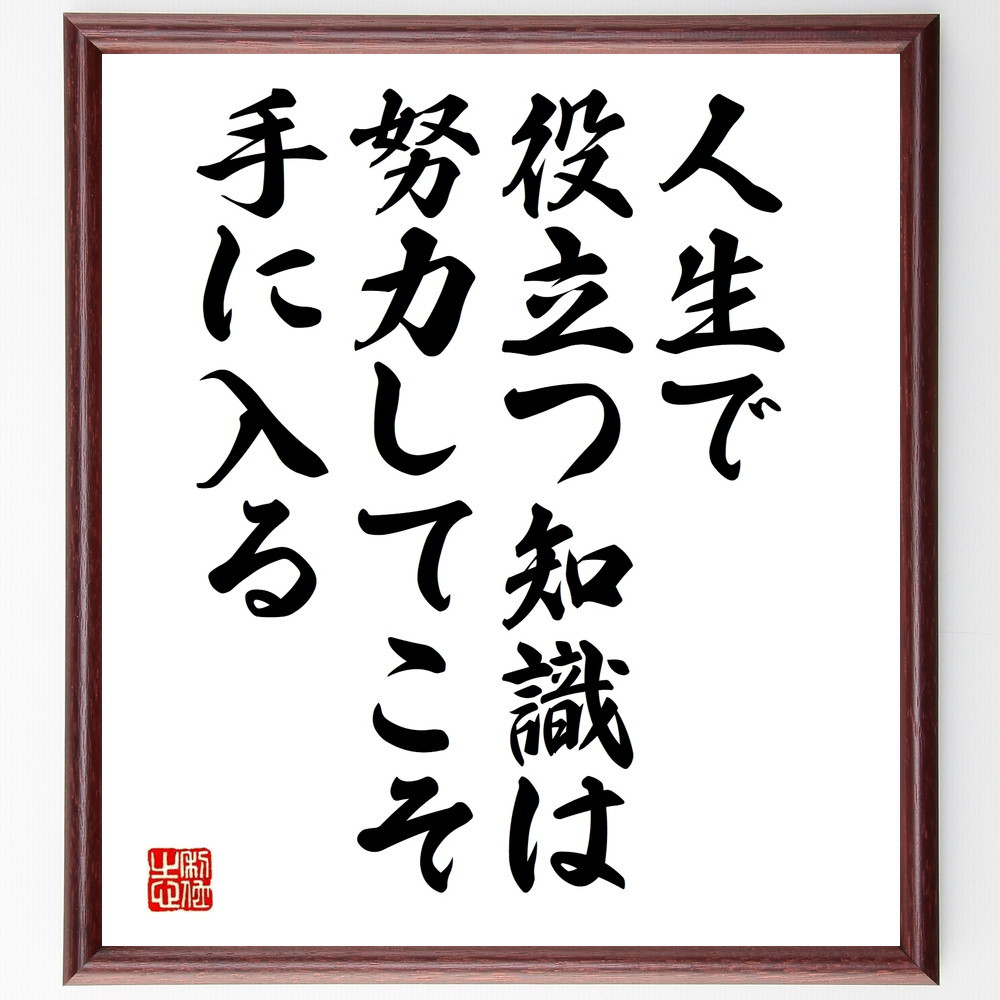 人生で
役立つ知識は
努力してこそ
手に入る